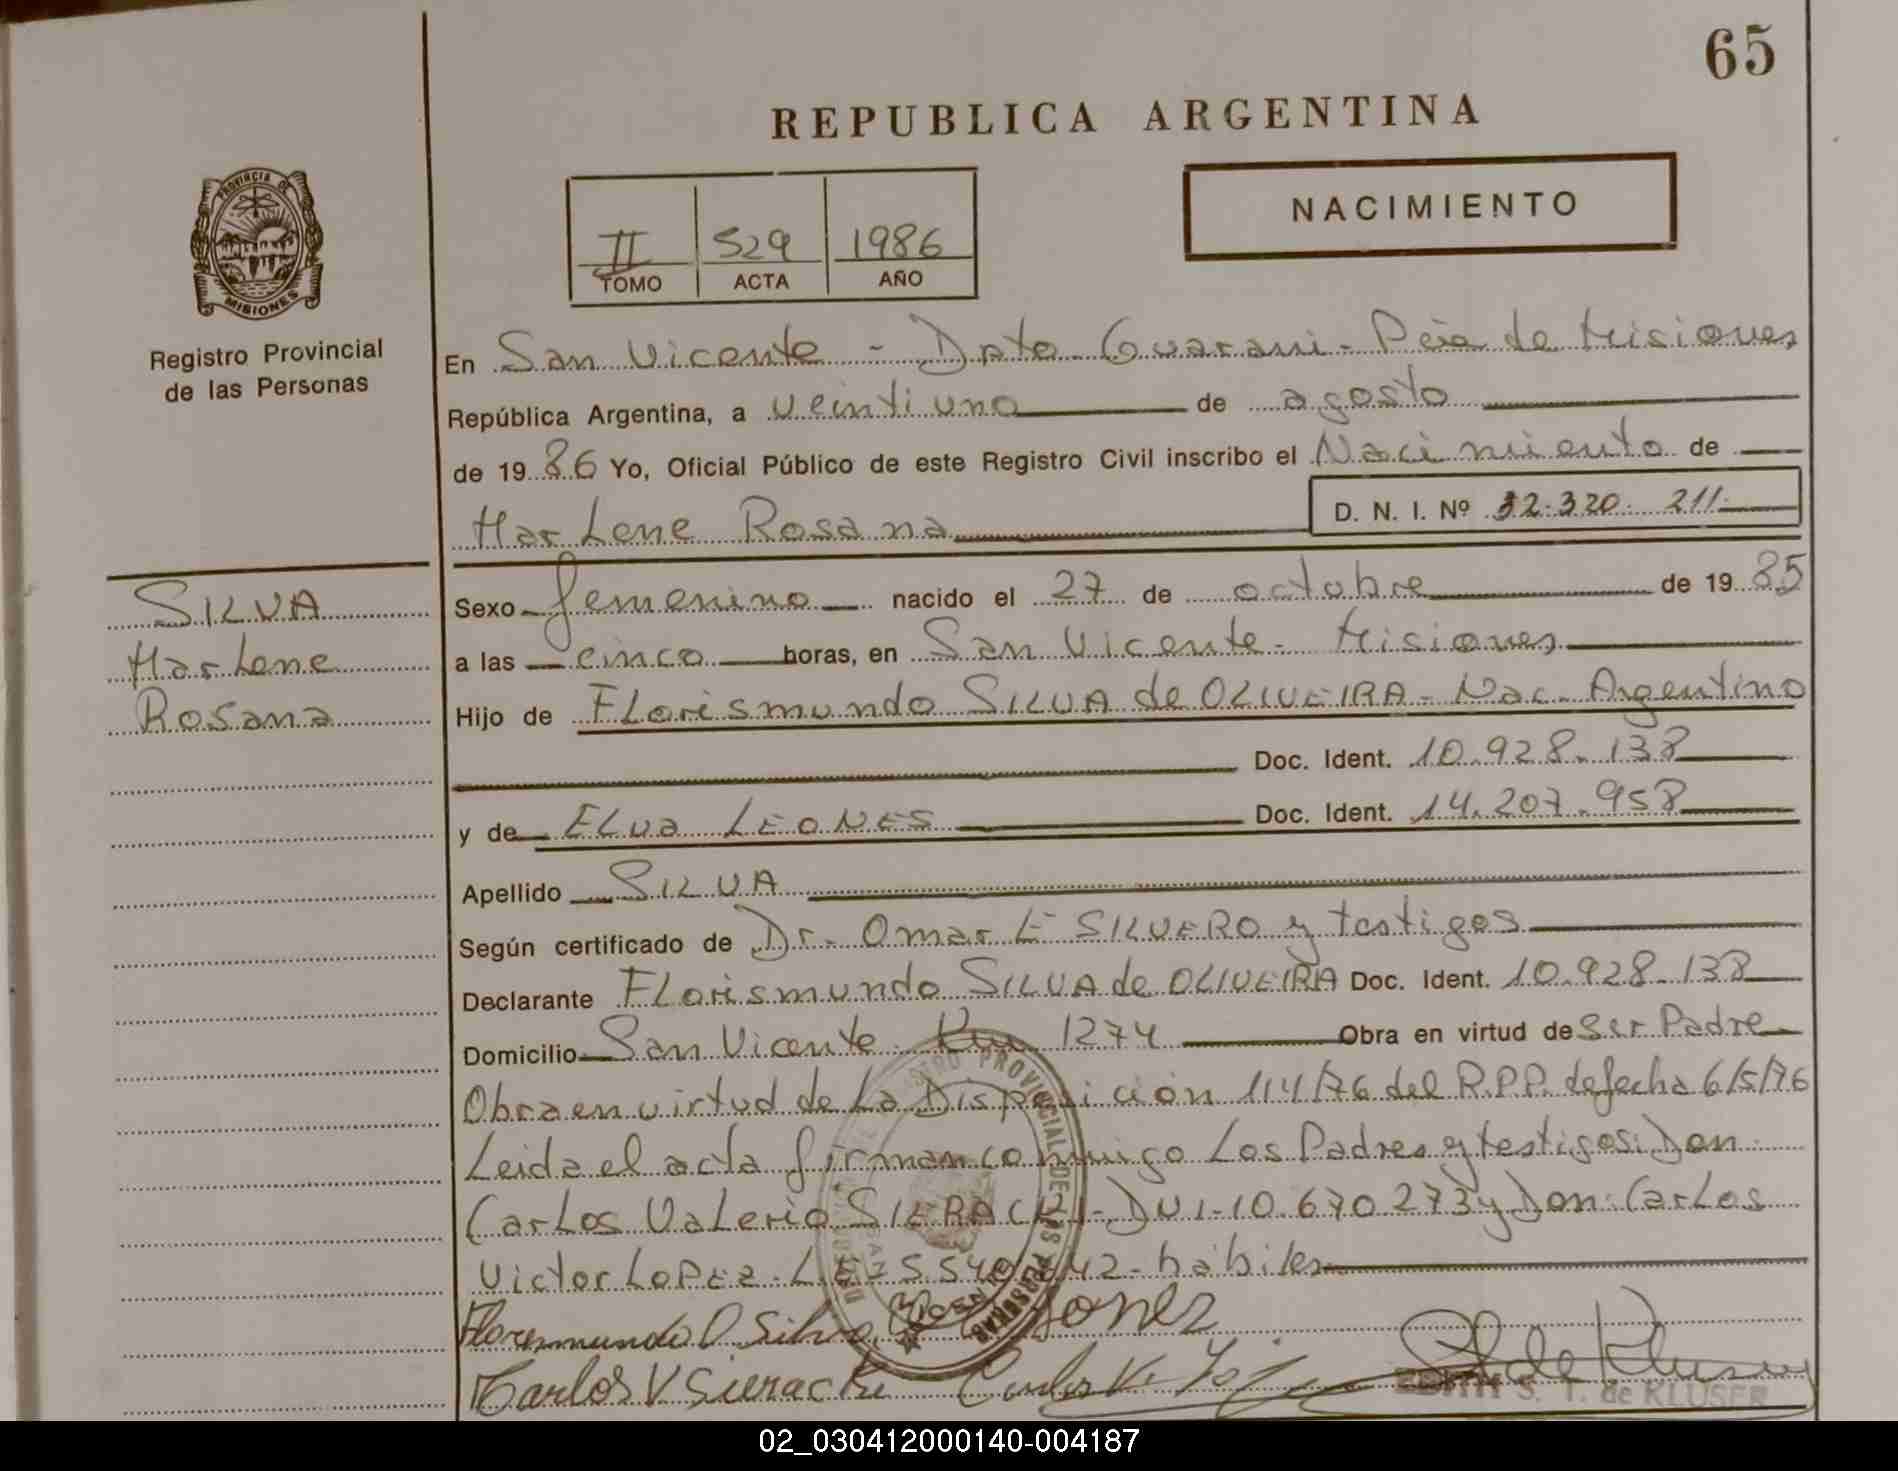 65
REPUBLICA ARGENTINA
PROVINCIA DE
MISIONES
Registro Provincial
de las Personas
II 529 1986
TOMO ACTA AÑO
NACIMIENTO
En San Vicente - Dpto Guarani - Pcia de Misiones
República Argentina, a veintiuno de agosto
de 1986 Yo, Oficial Público de este Registro Civil inscribo el Nacimiento de
MarLene Rosana D. N. I. Nº 32.320.211
SILVA
MarLene
Rosana
Sexo femenino nacido el 27 de octubre de 1985
a las cinco horas, en San Vicente - Misiones
Hijo de FLorismundo SILVA de OLIVEIRA - Nac. Argentino
Doc. Ident. 10.928.138
y de ELva LEONES Doc. Ident. 14.207.958
Apellido SILVA
Según certificado de Dr. Omar E SILVERO y testigos
Declarante FLorismundo SILVA de OLIVEIRA Doc. Ident. 10.928.138
Domicilio San Vicente Km 1274 Obra en virtud de Ser Padre
Obra en virtud de La Disposición 114/76 del R.P.P. de fecha 6/5/76
Leida el acta firman conmigo Los Padres y testigos: Don
Carlos Valerio SIERACKI - DNI - 10.670.273 y Don: CarLos
Victor LOPEZ - L.E. 7.554 - habiles
Florismundo D Silva
Carlos V Sieracki
EDITH S. T. de KLUSER
REGISTRO PROVINCIAL DE LAS PERSONAS
02_030412000140-004187